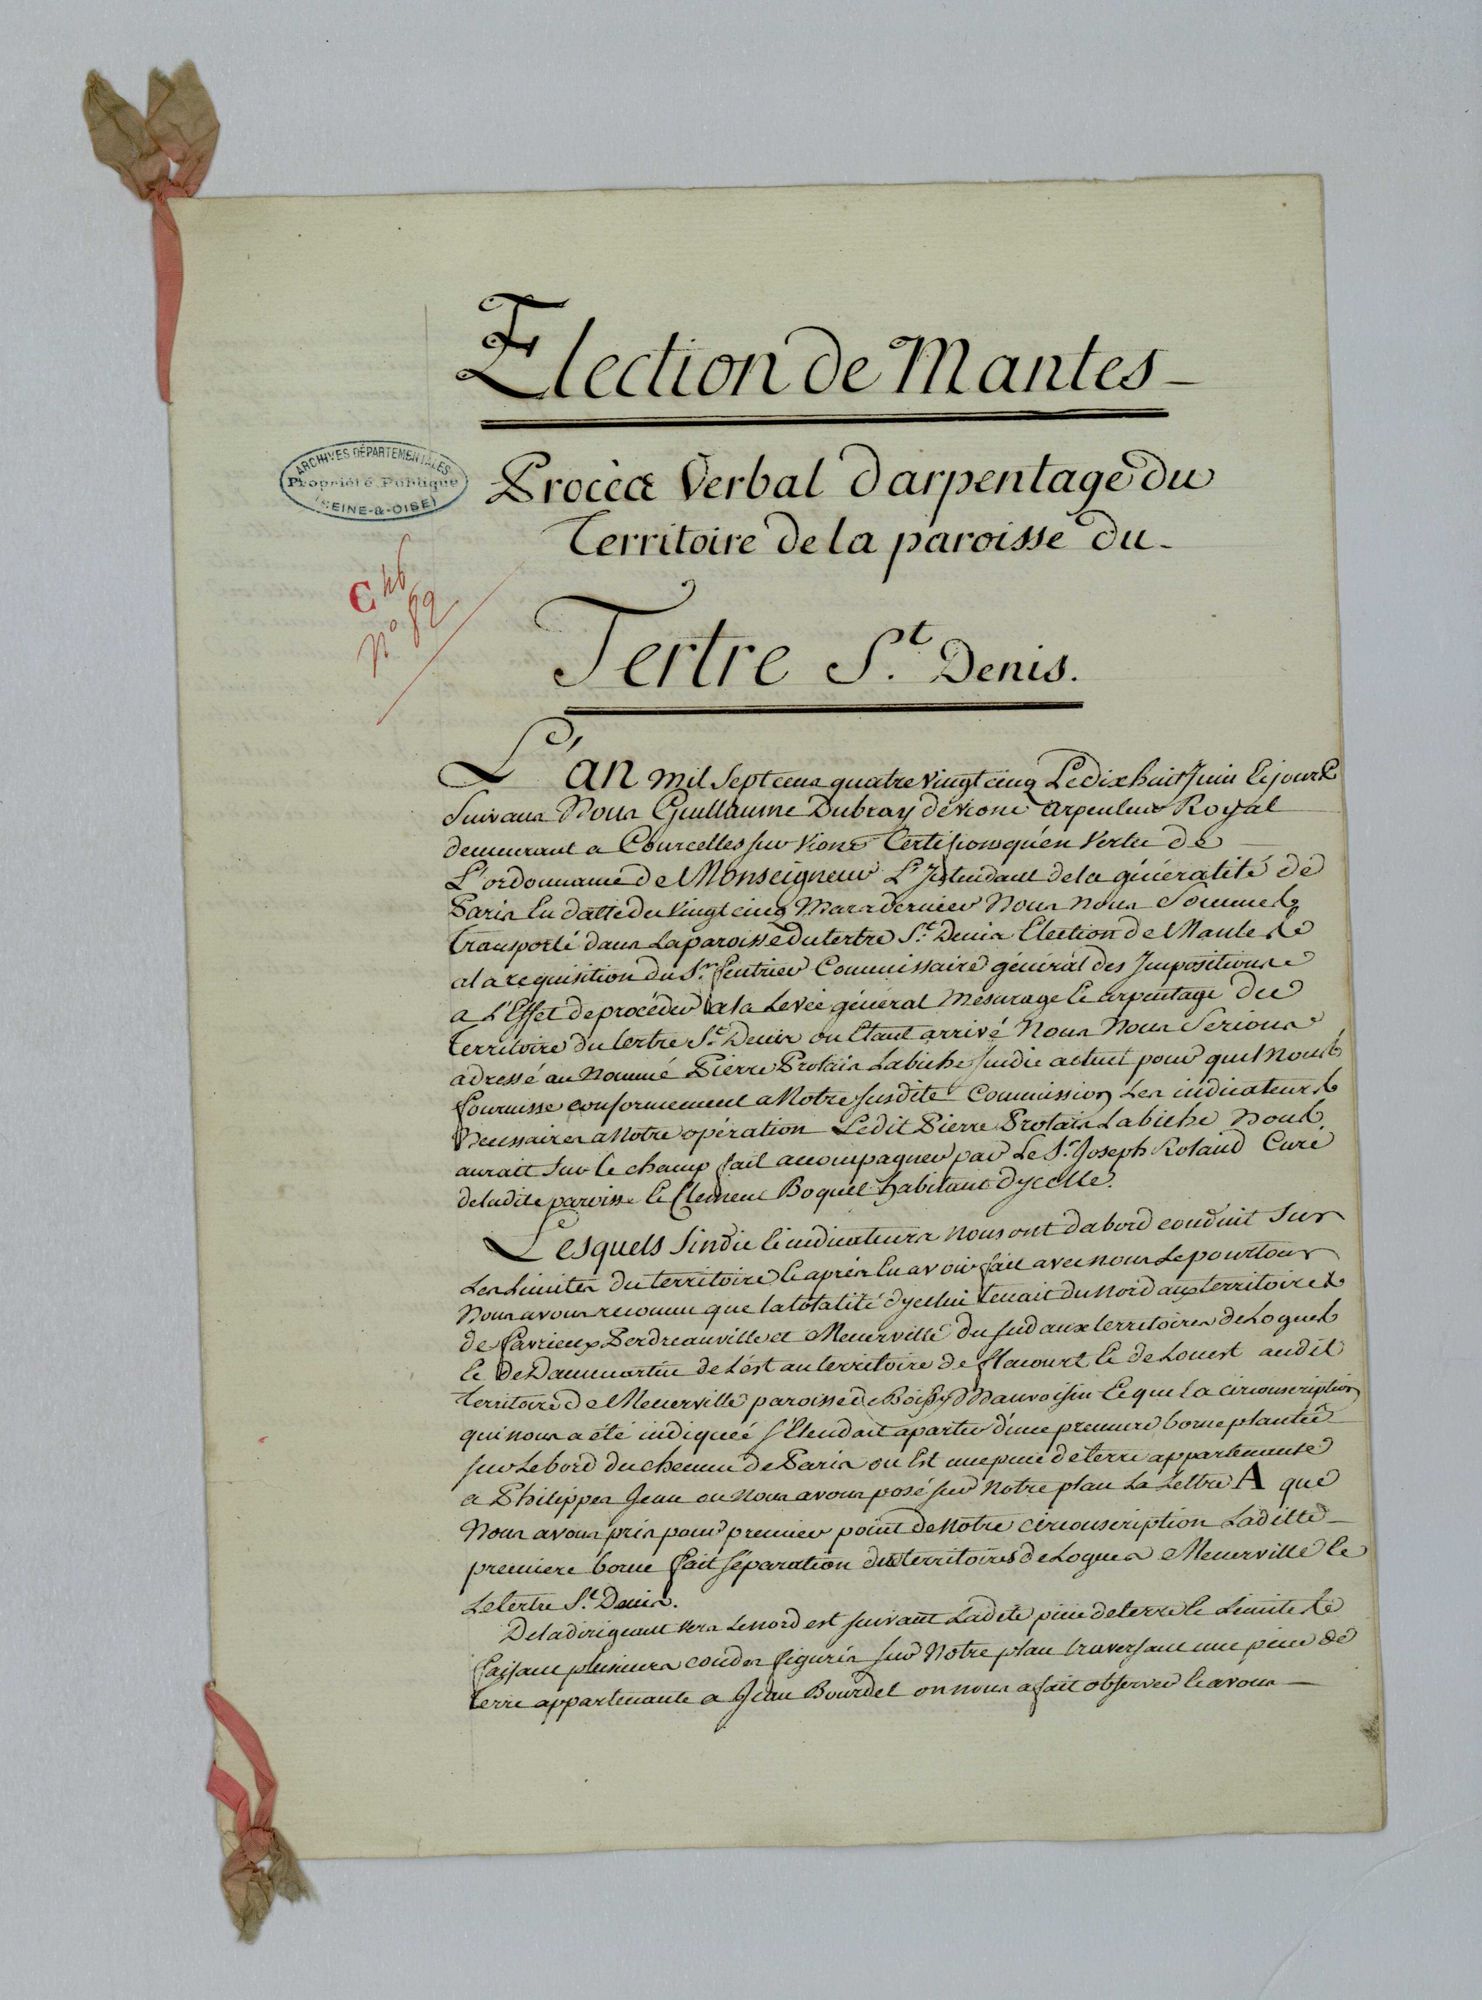 Election de Mantes
ARCHIVES DÉPARTEMENTALES
Propriété Publique
(SEINE-&-OISE)
Procès Verbal darpentage du
Territoire de la paroisse du
C 46
N° 89
Tertre S.t Denis.
L'an mil Sept cens quatre vingt cinq Le dix huit Juin Et jours
Suivans Nous Guillaume Dubray devione Arpenteur Royal
demeurant a Courcelles sur vione Certifions qu'en Vertu de
L'ordonnance de Monseigneur L'Intendant de la généralité de
Paris En datte du Vingt cinq Mars dernier Nous nous Sommes
transporté dans La paroisse du tertre S.t Denis Election de Mante
a la requisition du S.r Feutrier Commissaire général des Impositions
a L'Effet de procéder a la Levée général Mesurage Et arpentage du
Territoire du tertre S.t Denis ou Etant arrivé Nous Nous Serions
adressé au Nommé Pierre Protais Labiche Sindic actuel pour quil Nous
fournisse conformement a Notre susdite Commission Les indicateurs
Necessaires a Notre opération Ledit Pierre Protais Labiche Nous
aurait Sur le champ fait accompagner par Le S.r Joseph Roland Curé
de ladite paroisse Et Clement Boquet habitant d'ycelle.
Lesquels Sindic Et indicateurs nous ont dabord conduit Sur
Les Limites du territoire Et après En avoir fait avec nous Le pourtour
Nous avons reconnu que la totalité dycelui tenait du Nord aux territoires
de favrieux Perdreauville et Menerville du sud aux territoires de Lognes
Et de Dammartin de L'ést au territoire de flacourt Et de Louest audit
Territoire de Menerville paroisse de Boissy Mauvoisin Et que La circonscription
qui nous a été indiqueé s'Etendait apartir d'une premiere borne plantée
sur Le bord du chemin de Paris ou Est une piece de terre appartenante
a Philippes Jean ou nous avons posé sur Notre plan La Lettre A que
Nous avons pris pour premier point de Notre circonscription Laditte
premiere borne fait séparation des territoires de Lognes Menerville Et
Le tertre S.t Denis.
De la dirigeant vers Le nord est suivant Ladite piece de terre Et Limites
faisant plusieurs coudes figurés sur Notre plan traversant une piece de
terre appartenante a Jean Bourdel on nous a fait observer Et avons